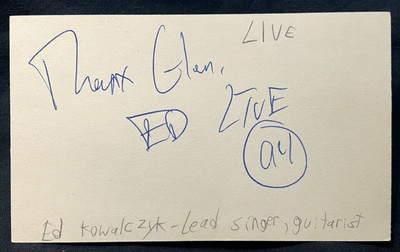 LIVE
Thanx Glen,
ED LIVE
94
Ed Kowalczyk - Lead singer, guitarist